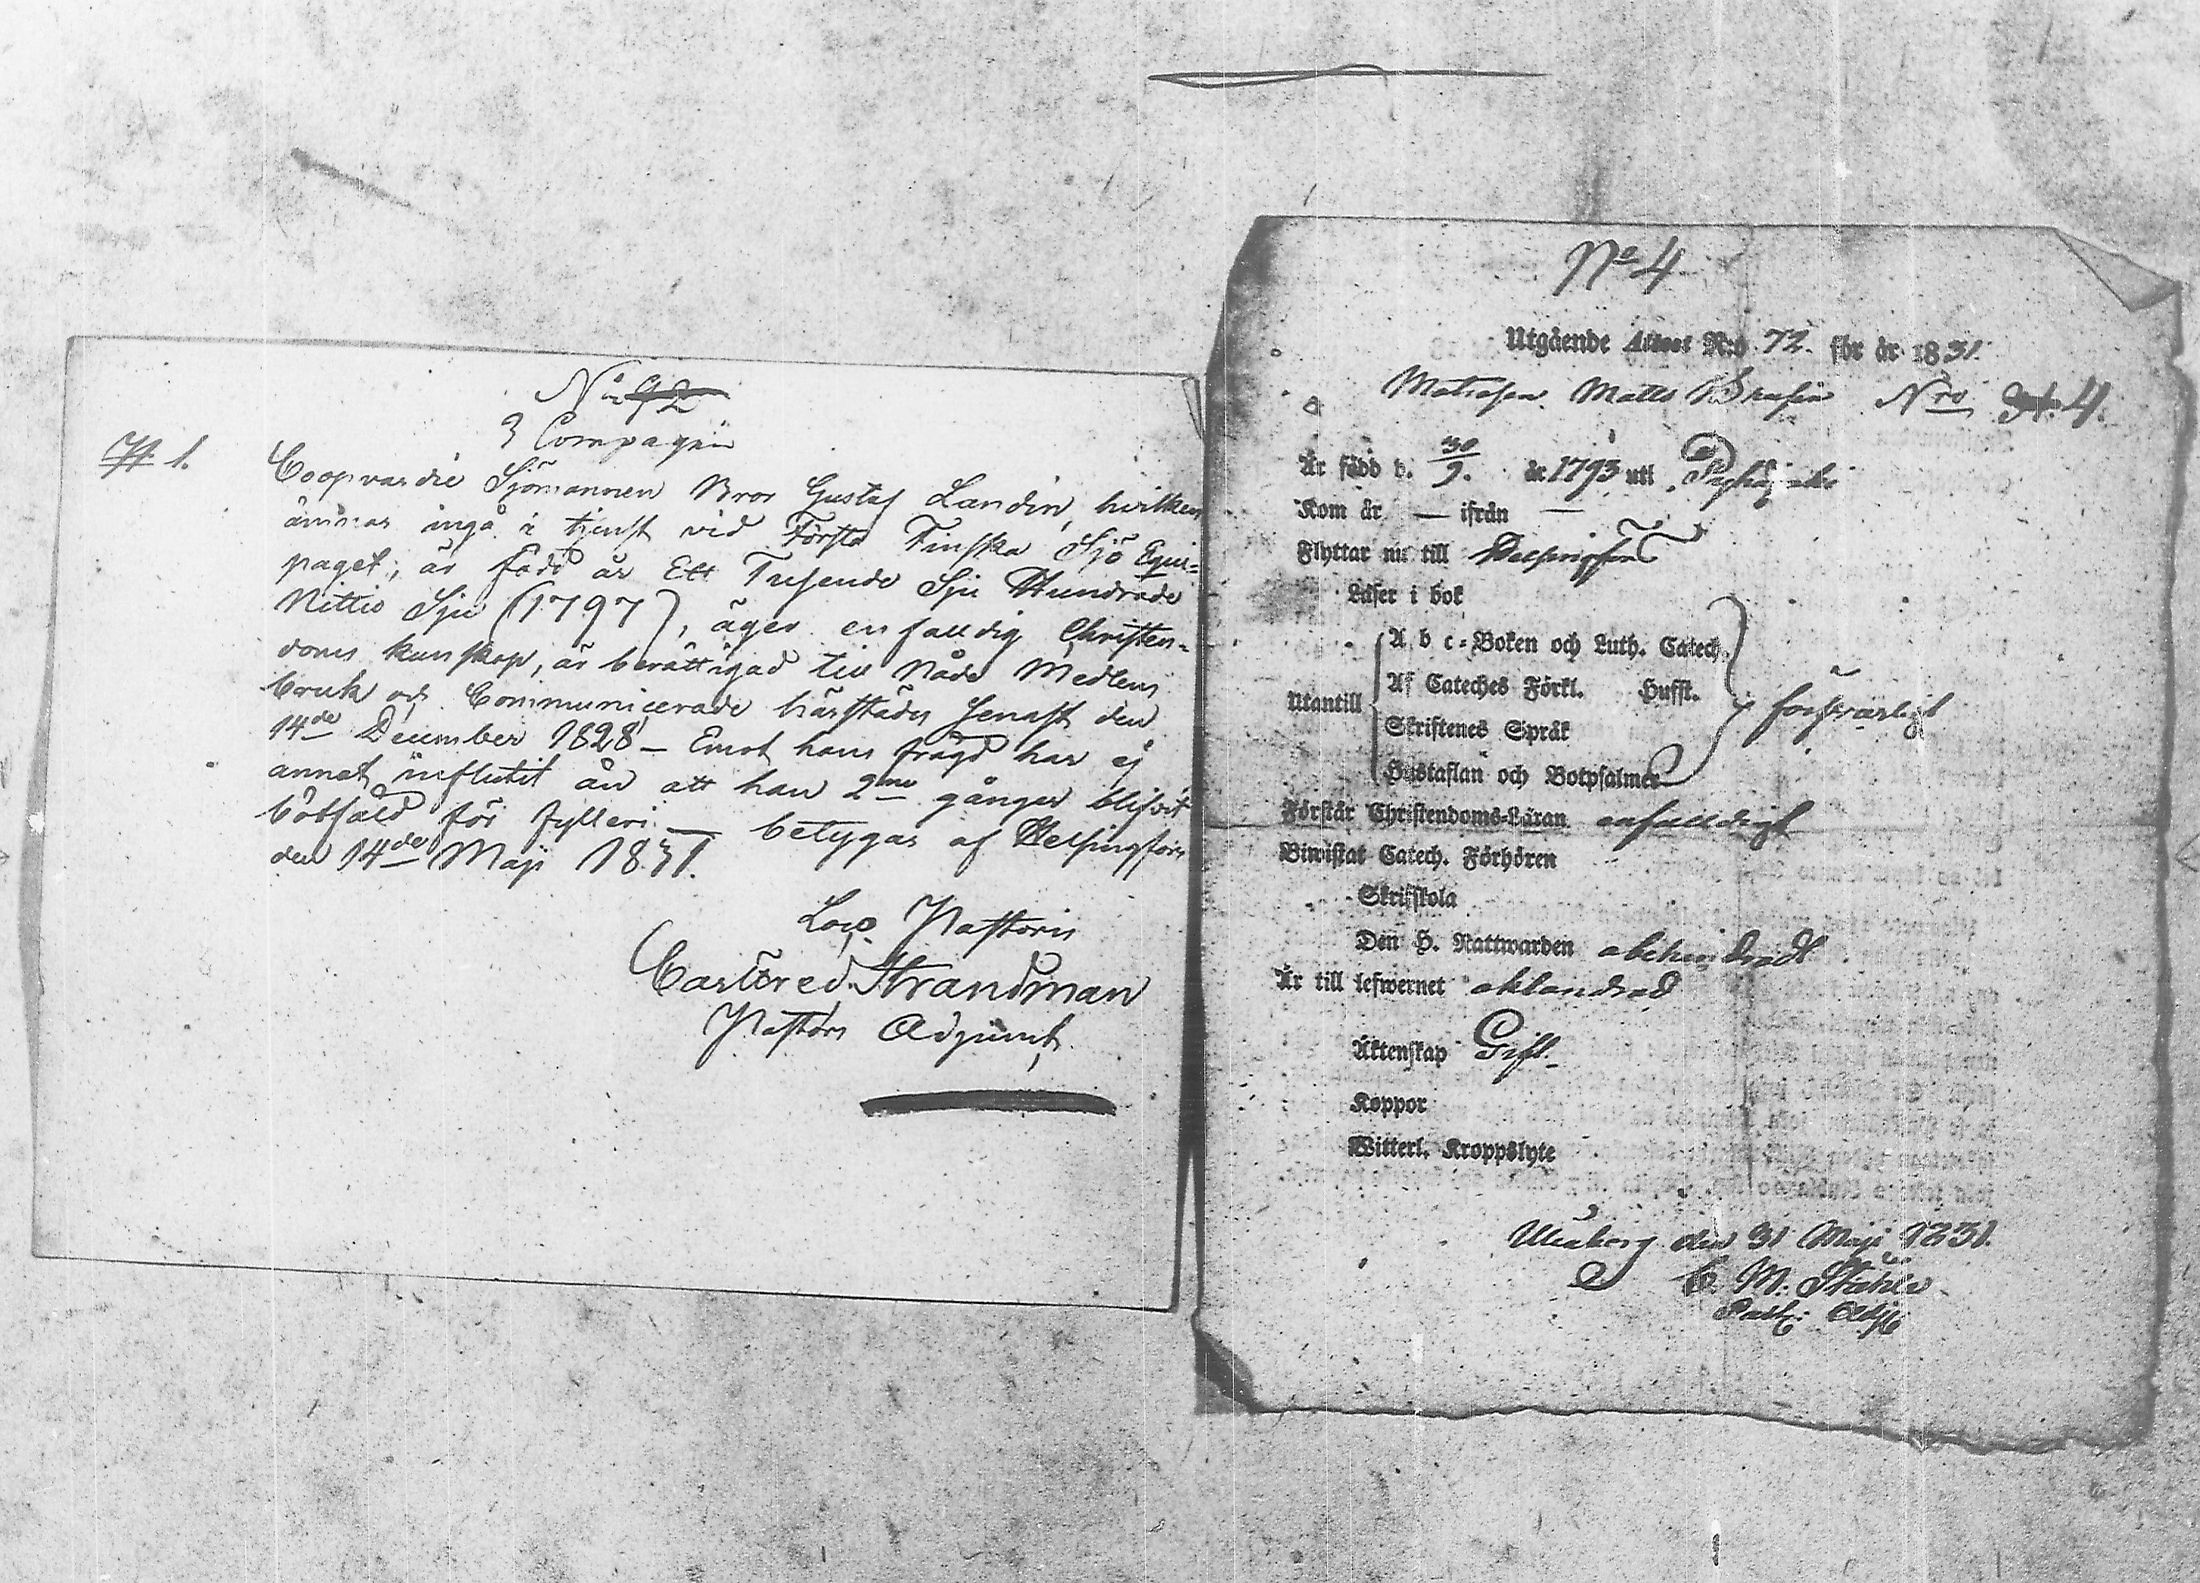 No 92
3 Compagnie
H. 1.
Coopvardie Sjömannen Bror Gustaf Landin, hvilken
ämnar ingå i tjenst vid Första Finska Sjö Equi=
paget, är född år Ett Tusende Sju Hundrade
Nittio Sju (1797), äger enfalldig Christen-
doms kunskap, är berättigad till Nåde Medlens
bruk och Communicerade härstädes senast den
14de December 1828 – Emot hans frägd har ej
annat influtit än att han 2ne gånger blifvit
botfäld för fylleri — betygas af Helsingfors
den 14de Maji 1831.
Loco Pastoris
Carl Fred. Strandman
Pastors Adjunct
No 4
Utgående Attest N:o 72. för år 1831.
Matrosen Matts Nro 4.
Är född d. 30/9. år 1793 uti
Kom år — ifrån —
Flyttar nu till Helsingfors
Läser i bok
Utantill
A b c=Boken och Luth. Catech.
Af Cateches Förkl. Hufst.
Skriftenes Språk
Hustaflan och Botpsalmer
försvarligt
Förstår Christendoms=Läran enfalldigt
Biwistat Catech. Förhören
Skriftskola
Den H. Nattwarden obehindradt
Är till lefwernet oklandrad
Äktenskap Gift.
Koppor
Witterl. Kroppslyte
Uleåborg den 31 Maji 1831.
C. M. Ståhle
Past: Adj: